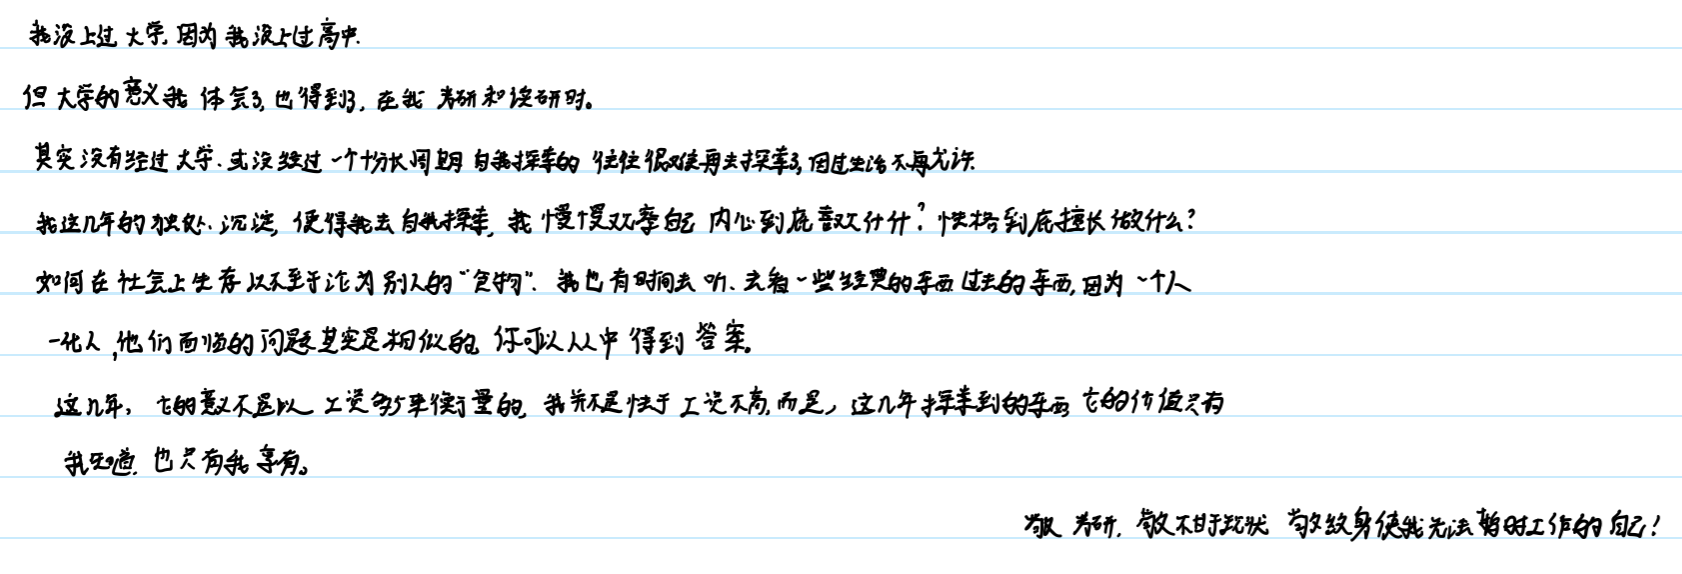 我没上过大学,因为我没上过高中.
但大学的意义我体会了,也得到了,在我考研和读研时。
其实没有经过大学.或没经过一个十分长周期自我探索的往往很难再去探索了,因过生活不再允许.
我这几年的独处.沉淀,使得我去自我探索,我慢慢观察自己内心到底喜欢什什?性格到底擅长做什么?
如何在社会上生存以不至于沦为别人的“食物”.我也有时间去听.去看一些经典的东西过去的东西,因为一个人
一代人,他们面临的问题其实是相似的 你可以从中得到答案。
这几年,它的意义不是以工资多少来衡量的,我并不是忙于工资不高,而是,这几年探索到的东西它的价值只有
我知道.也只有我享有。
敬考研.敬不甘于现状 敬纹身使我无法暂时工作的自己!